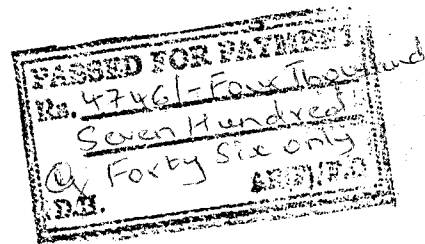 PASSED FOR PAYMENT
Rs. 4746/- Four Thousand
Seven Hundred
& Forty Six only
D.H.